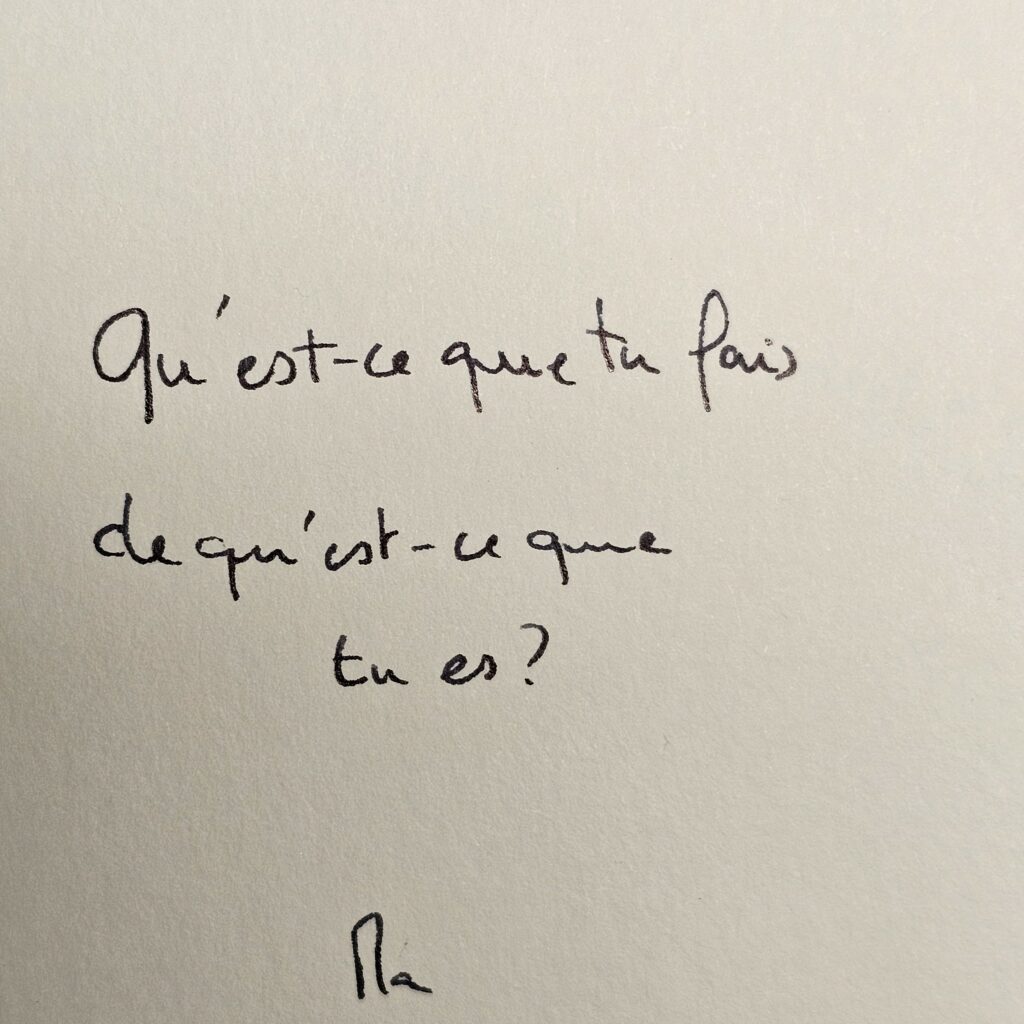 Qu'est-ce que tu fais
de qu'est-ce que
tu es ?
Ma